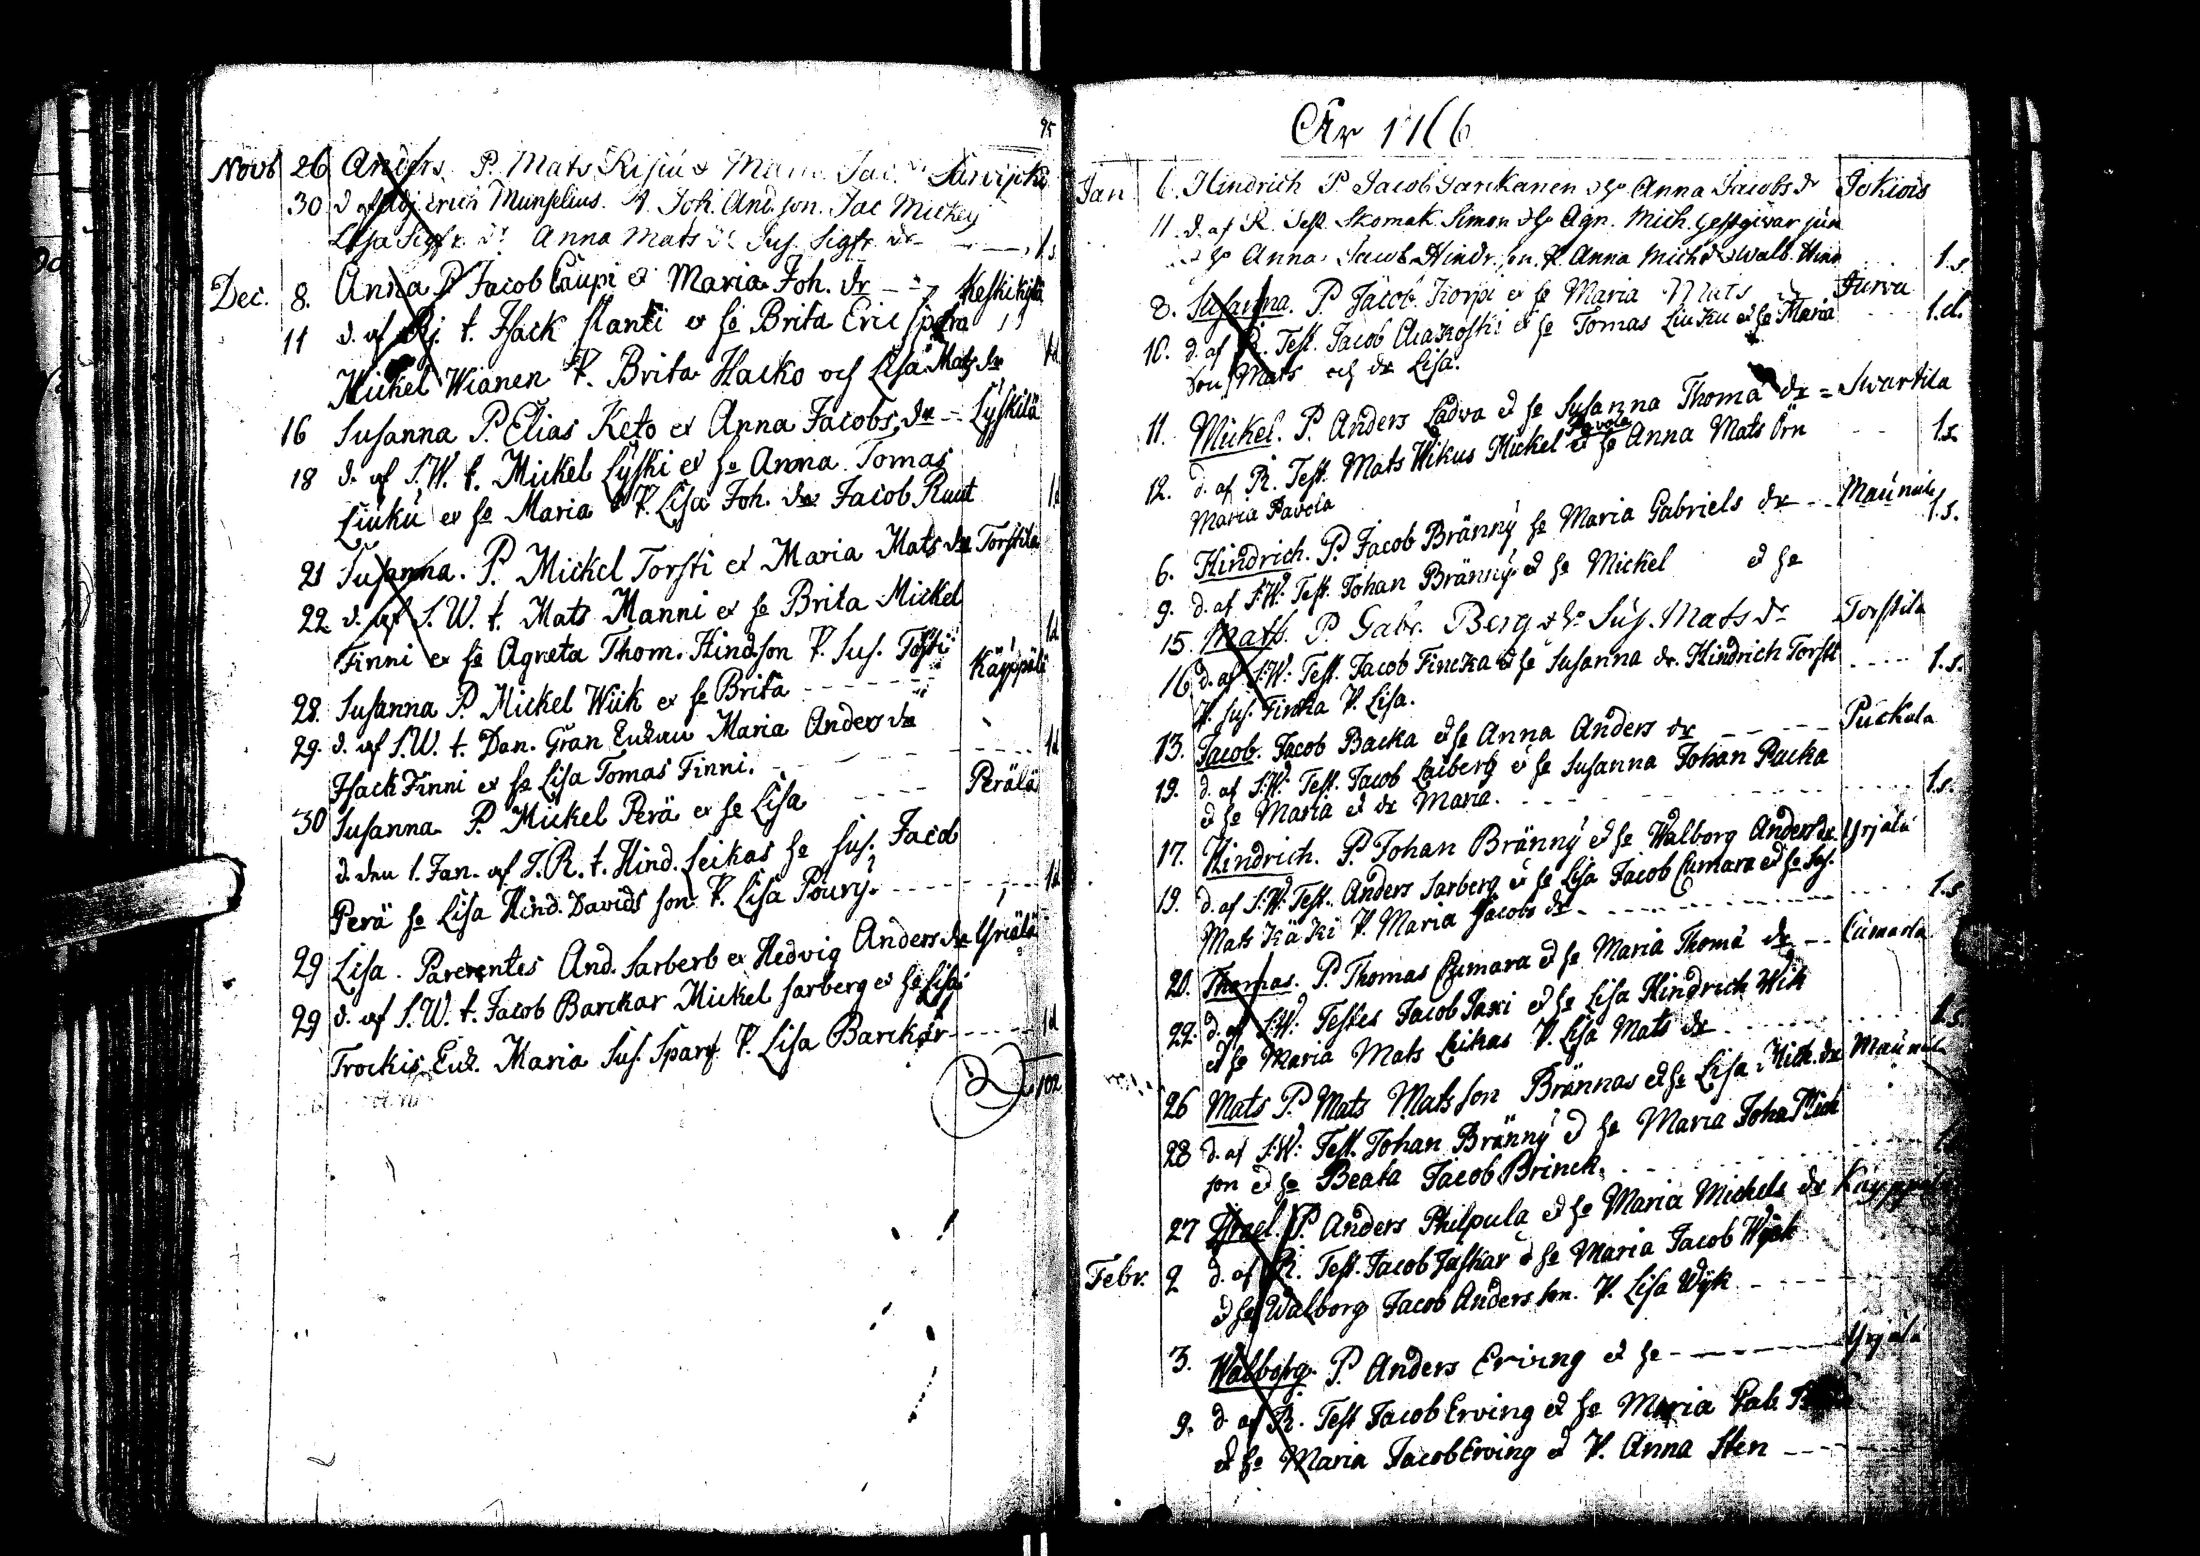 95
Novb 26 Anders. P. Mats & Jac.
30 d. af Adj. Erich Munselius. T. Joh. And.son. Jac Mickels
Lisa Sigfr. dr Anna Mats dr Sus. Sigfr. dr 1 s
Dec. 8. Anna P Jacob Caupi et Maria Joh. dr Keskikylä
11 d. af Rj. t. Isack et he Brita Eric
Mickel Wianen V. Brita Hacko och Lisa Mats dr 1d
16 Susanna P. Elias Keto et Anna Jacobs dr Lyskilä
18 d. af S.W. t. Mickel Lyski et he Anna. Tomas
Liuku et he Maria V. Lisa Joh. dr Jacob Ruut 1d
21 Susanna. P. Mickel Torsti et Maria Mats dr Torstila
22 d. af S.W. t. Mats Manni et he Brita Mickel
Finni et he Agneta Thom. Hindson V. Sus. Tosti 1d
28. Susanna P. Mickel Wiik et he Brita Käppälä
29. d. af S.W. t. Dan. Gran Maria Anders dr
Isack Finni et he Lisa Tomas Finni. 1d
30 Susanna P. Mickel Perä et he Lisa Perälä
d. den 1. Jan. af J.R. t. Hind. Leikas he Sus. Jacob
Perä he Lisa Hind. Davids son V. Lisa Poury. 1d
29 Lisa. Parerentes And. Sarberb et Hedvig Anders dr Yriälä
29 d. af S.W. t. Jacob Barckar Mickel Sarberg et he Lisa
Trockis Maria Sus. Sparf V. Lisa Barckar 1d
102
År 1766
Jan 6. Hindrich P Jacob Jarckanen & he Anna Jacobs dr Jokiois
11. d. af R. Test. Skomak. Simon & he Agn. Mich. Gestgivar jun
& he Anna. Jacob Hindr.son. V. Anna Mich dr & Walb. Hind 1.s.
8. Susanna. P. Jacob et he Maria Mats Jurva
10. d. af R. Test. Jacob Alakoski et he Tomas Liuku et he Maria 1.d.
son Mats och dr Lisa.
11. Mickel. P. Anders Ladva et he Susanna Thoma dr = Swartila
Pavola
12. d. af R. Test. Mats Wikus Mickel et he Anna Mats Örn 1.s.
Maria Pavola
6. Hindrich. P. Jacob Bränny he Maria Gabriels dr Maunula
1.s.
9. d. af S.W. Test. Johan Bränny et he Mickel et he
15. Mats. P. Gabr. Berg & he Sus. Mats dr Torstila
16 d. af S.W: Test. Jacob Fincka et he Susanna dr. Hindrich Torsti 1.s.
V. Sus. Fincka V. Lisa.
13. Jacob. Jacob Backa et he Anna Anders dr Puckala
19. d. af S.W: Test. Jacob Laiberg et he Susanna Johan Packa
et he Maria et dr Maria. 1.s.
17. Hindrich. P. Johan Bränny et he Walborg Anders dr. Yrjälä
19. d. af S.W: Test. Anders Sarberg et he Lisa Jacob Cumara et he Sus.
Mats Käki V. Maria Jacobs dr 1.s
20. Thomas. P. Thomas Cumara et he Maria Thoma dr Cumarla
22. d. af S.W: Testes Jacob Saxi et he Lisa Hindrich Wik
et he Maria Mats Leikas V. Lisa Mats dr 1.s
26 Mats P. Mats Mats son Brännas et he Lisa Mich. dr Maunula
28 d. af S.W: Test. Johan Bränny et he Maria Joha Mich
son et he Beata Jacob Brinck.
27 Israel. P. Anders Philpula et he Maria Michels dr Käppälä
Febr. 2 d. af R. Test. Jacob Jäskar et he Maria Jacob Wyk
et he Walborg Jacob Anders son. V. Lisa Wyk
3. Walborg. P. Anders Erving et he Yrjälä
9. d. af R. Test Jacob Erving et he Maria Gab.
et he Maria Jacob Erving et V. Anna Sten